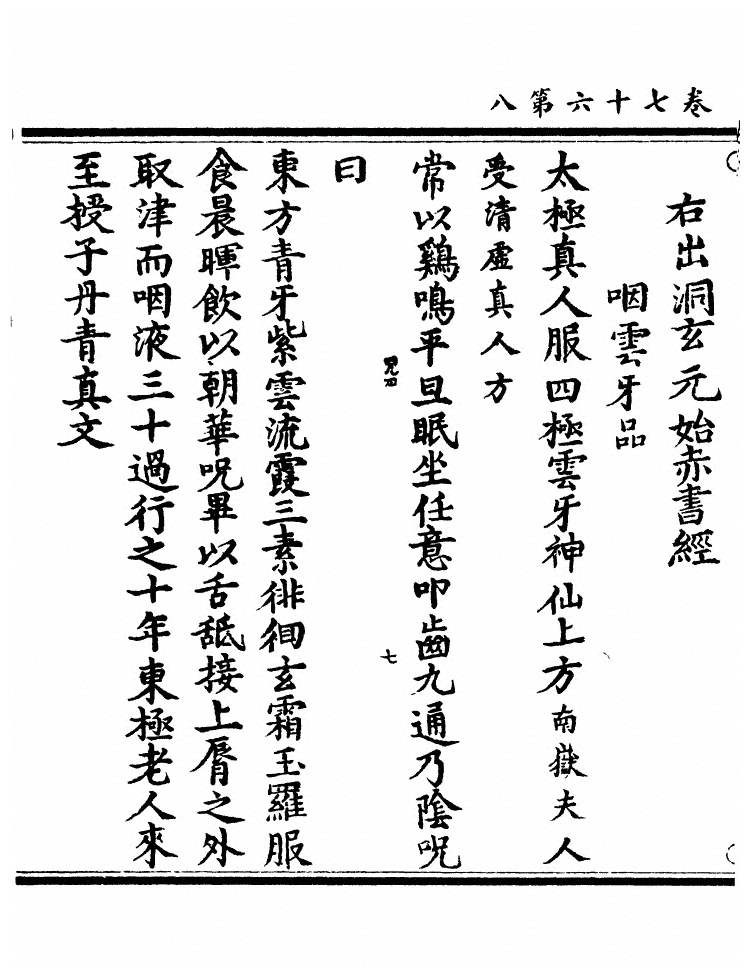 卷七十六第八
右出洞玄元始赤書經
咽雲牙品
太極真人服四極雲牙神仙上方南嶽夫人
受清虛真人方
常以鷄鳴平旦眠坐任意叩齒九通乃陰呪
七
曰
東方青牙紫雲流霞三素徘徊玄霜玉羅服
食晨暉飲以朝華呪畢以舌舐接上脣之外
取津而咽液三十過行之十年東極老人來
至授子丹青真文